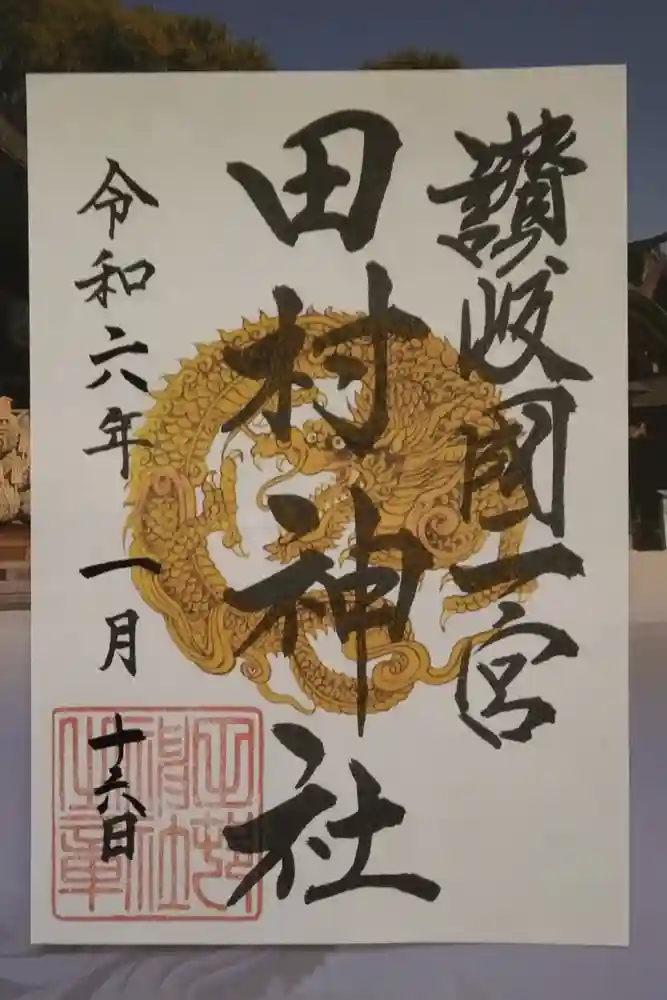 讃岐國一宮
田村神社
令和六年 一月十六日
田村
神社
之章